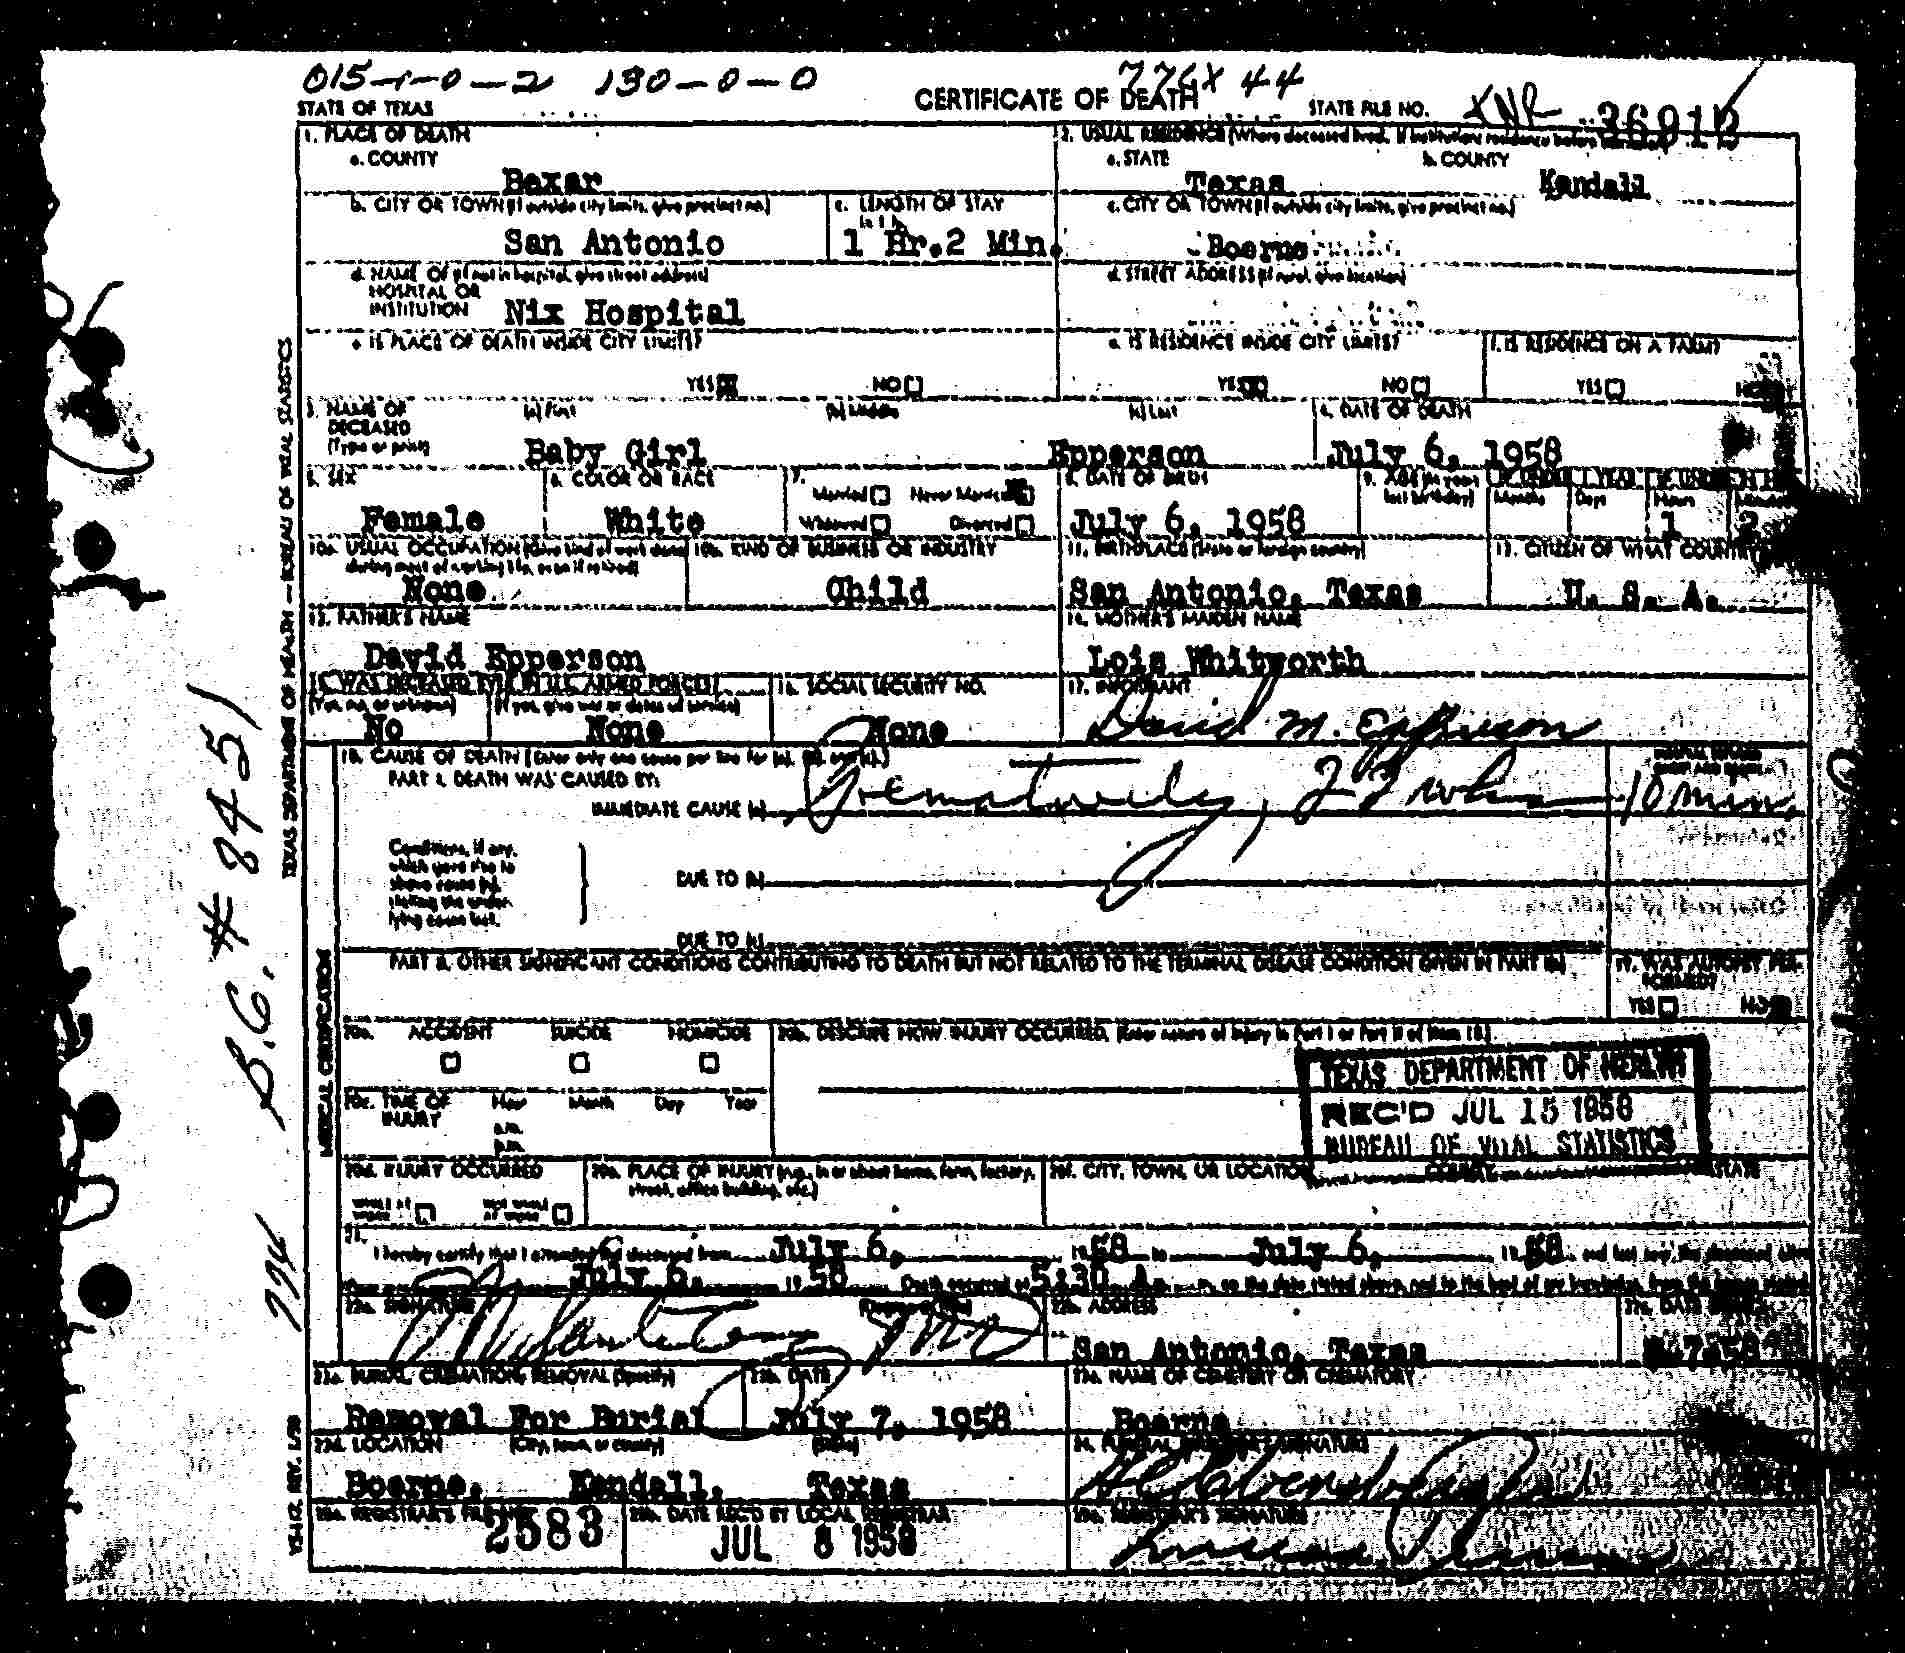 015-1-0-2 130-0-0 776X 44
STATE OF TEXAS CERTIFICATE OF DEATH STATE FILE NO.
1. PLACE OF DEATH 2. USUAL RESIDENCE (Where deceased lived. If institution: residence before
a. COUNTY a. STATE b. COUNTY
Bexar Texas Kendall
b. CITY OR TOWN (If outside city limits, give precinct no.) c. LENGTH OF STAY c. CITY OR TOWN (If outside city limits, give precinct no.)
San Antonio 1 Hr.2 Min. Boerne
d. NAME OF (If not in hospital, give street address) d. STREET ADDRESS (If rural, give location)
HOSPITAL OR
INSTITUTION Nix Hospital
e. IS PLACE OF DEATH INSIDE CITY LIMITS? e. IS RESIDENCE INSIDE CITY LIMITS? f. IS RESIDENCE ON A FARM?
YES NO YES NO YES NO
3. NAME OF (a) First (b) Middle (c) Last 4. DATE OF DEATH
DECEASED
(Type or print) Baby Girl Epperson July 6, 1958
5. SEX 6. COLOR OR RACE 7. Married Never Married 8. DATE OF BIRTH 9. AGE (In years last birthday) Months Days Hours Minutes
Female White Widowed Divorced July 6, 1958 1 2
10a. USUAL OCCUPATION (Give kind of work done 10b. KIND OF BUSINESS OR INDUSTRY 11. BIRTHPLACE (State or foreign country) 12. CITIZEN OF WHAT COUNTRY
during most of working life, even if retired)
None Child San Antonio, Texas U. S. A.
13. FATHER'S NAME 14. MOTHER'S MAIDEN NAME
David Epperson Lois Whitworth
15. WAS DECEASED EVER IN U.S. ARMED FORCES? 16. SOCIAL SECURITY NO. 17. INFORMANT
(Yes, no, or unknown) (If yes, give war or dates of service)
No None None David M. Epperson
18. CAUSE OF DEATH (Enter only one cause per line for (a), (b), and (c).)
PART I. DEATH WAS CAUSED BY:
IMMEDIATE CAUSE (a) Prematurity, 10 min.
Conditions, if any,
which gave rise to
above cause (a), DUE TO (b)
stating the under-
lying cause last.
DUE TO (c)
PART II. OTHER SIGNIFICANT CONDITIONS CONTRIBUTING TO DEATH BUT NOT RELATED TO THE TERMINAL DISEASE CONDITION GIVEN IN PART I(a) 19. WAS AUTOPSY PER-
FORMED?
YES NO
20a. ACCIDENT SUICIDE HOMICIDE 20b. DESCRIBE HOW INJURY OCCURRED. (Enter nature of injury in Part I or Part II of item 18.)
TEXAS DEPARTMENT OF HEALTH
REC'D JUL 15 1958
BUREAU OF VITAL STATISTICS
20c. TIME OF Hour Month Day Year
INJURY a.m.
p.m.
20d. INJURY OCCURRED 20e. PLACE OF INJURY (e.g., in or about home, farm, factory, 20f. CITY, TOWN, OR LOCATION COUNTY STATE
street, office building, etc.)
21. I hereby certify that I attended the deceased from July 6, 19 58 to July 6, 19 58 and last saw the deceased alive
July 6, 19 58 Death occurred at 5:30 A. m. on the date stated above, and to the best of my knowledge, from the causes stated.
22a. SIGNATURE 22b. ADDRESS 22c. DATE SIGNED
San Antonio, Texas
23a. BURIAL, CREMATION, REMOVAL (Specify) 23b. DATE 23c. NAME OF CEMETERY OR CREMATORY
Removal For Burial July 7, 1958 Boerne
23d. LOCATION (City, town, or county) (State) 24. FUNERAL DIRECTOR'S SIGNATURE
Boerne, Kendall, Texas
25a. REGISTRAR'S FILE NO. 25b. DATE REC'D BY LOCAL REGISTRAR 25c. REGISTRAR'S SIGNATURE
2583 JUL 8 1958
TEXAS DEPARTMENT OF HEALTH — BUREAU OF VITAL STATISTICS
MEDICAL CERTIFICATION
B.C. # 8451
776